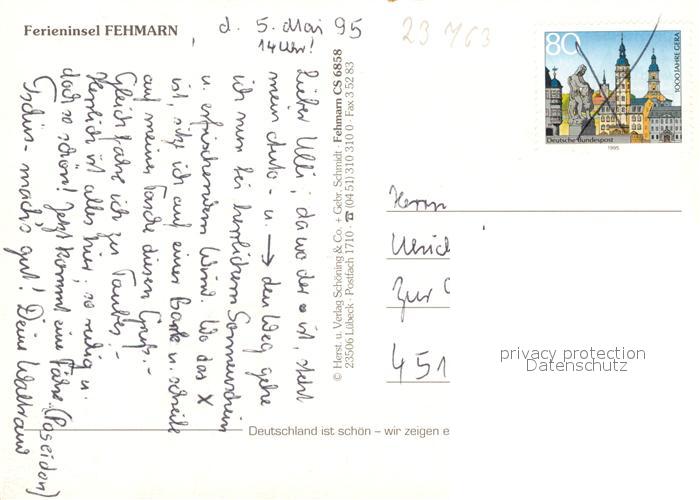 Ferieninsel FEHMARN
d. 5. Mai 95
14 Uhr!
Lieber Ulli, da wo der • ist, steht
mein Auto - u. → den Weg gehe
ich nun bei herrlichem Sonnenschein
u. erfrischendem Wind. Wo das X
ist, sitz ich auf einer Bank u. schreibe
auf meiner Tasche diesen Gruß.-
Gleich fahre ich zu Taubes,-
Herrlich ist alles hier, so ruhig u.
doch so schön! Jetzt kommt eine Fähre (Poseidon)
Tschüs- mach's gut! Deine Waltraud
© Herst. u. Verlag Schöning & Co. + Gebr. Schmidt · Fehmarn CS 6858
23506 Lübeck · Postfach 1710 · ☎ (04 51) 310 310 0 · Fax 3 52 83
23 763
80
1000 JAHRE GERA
Deutsche Bundespost
1995
Herrn
Ulrich
Zur
451
privacy protection
Datenschutz
Deutschland ist schön – wir zeigen e